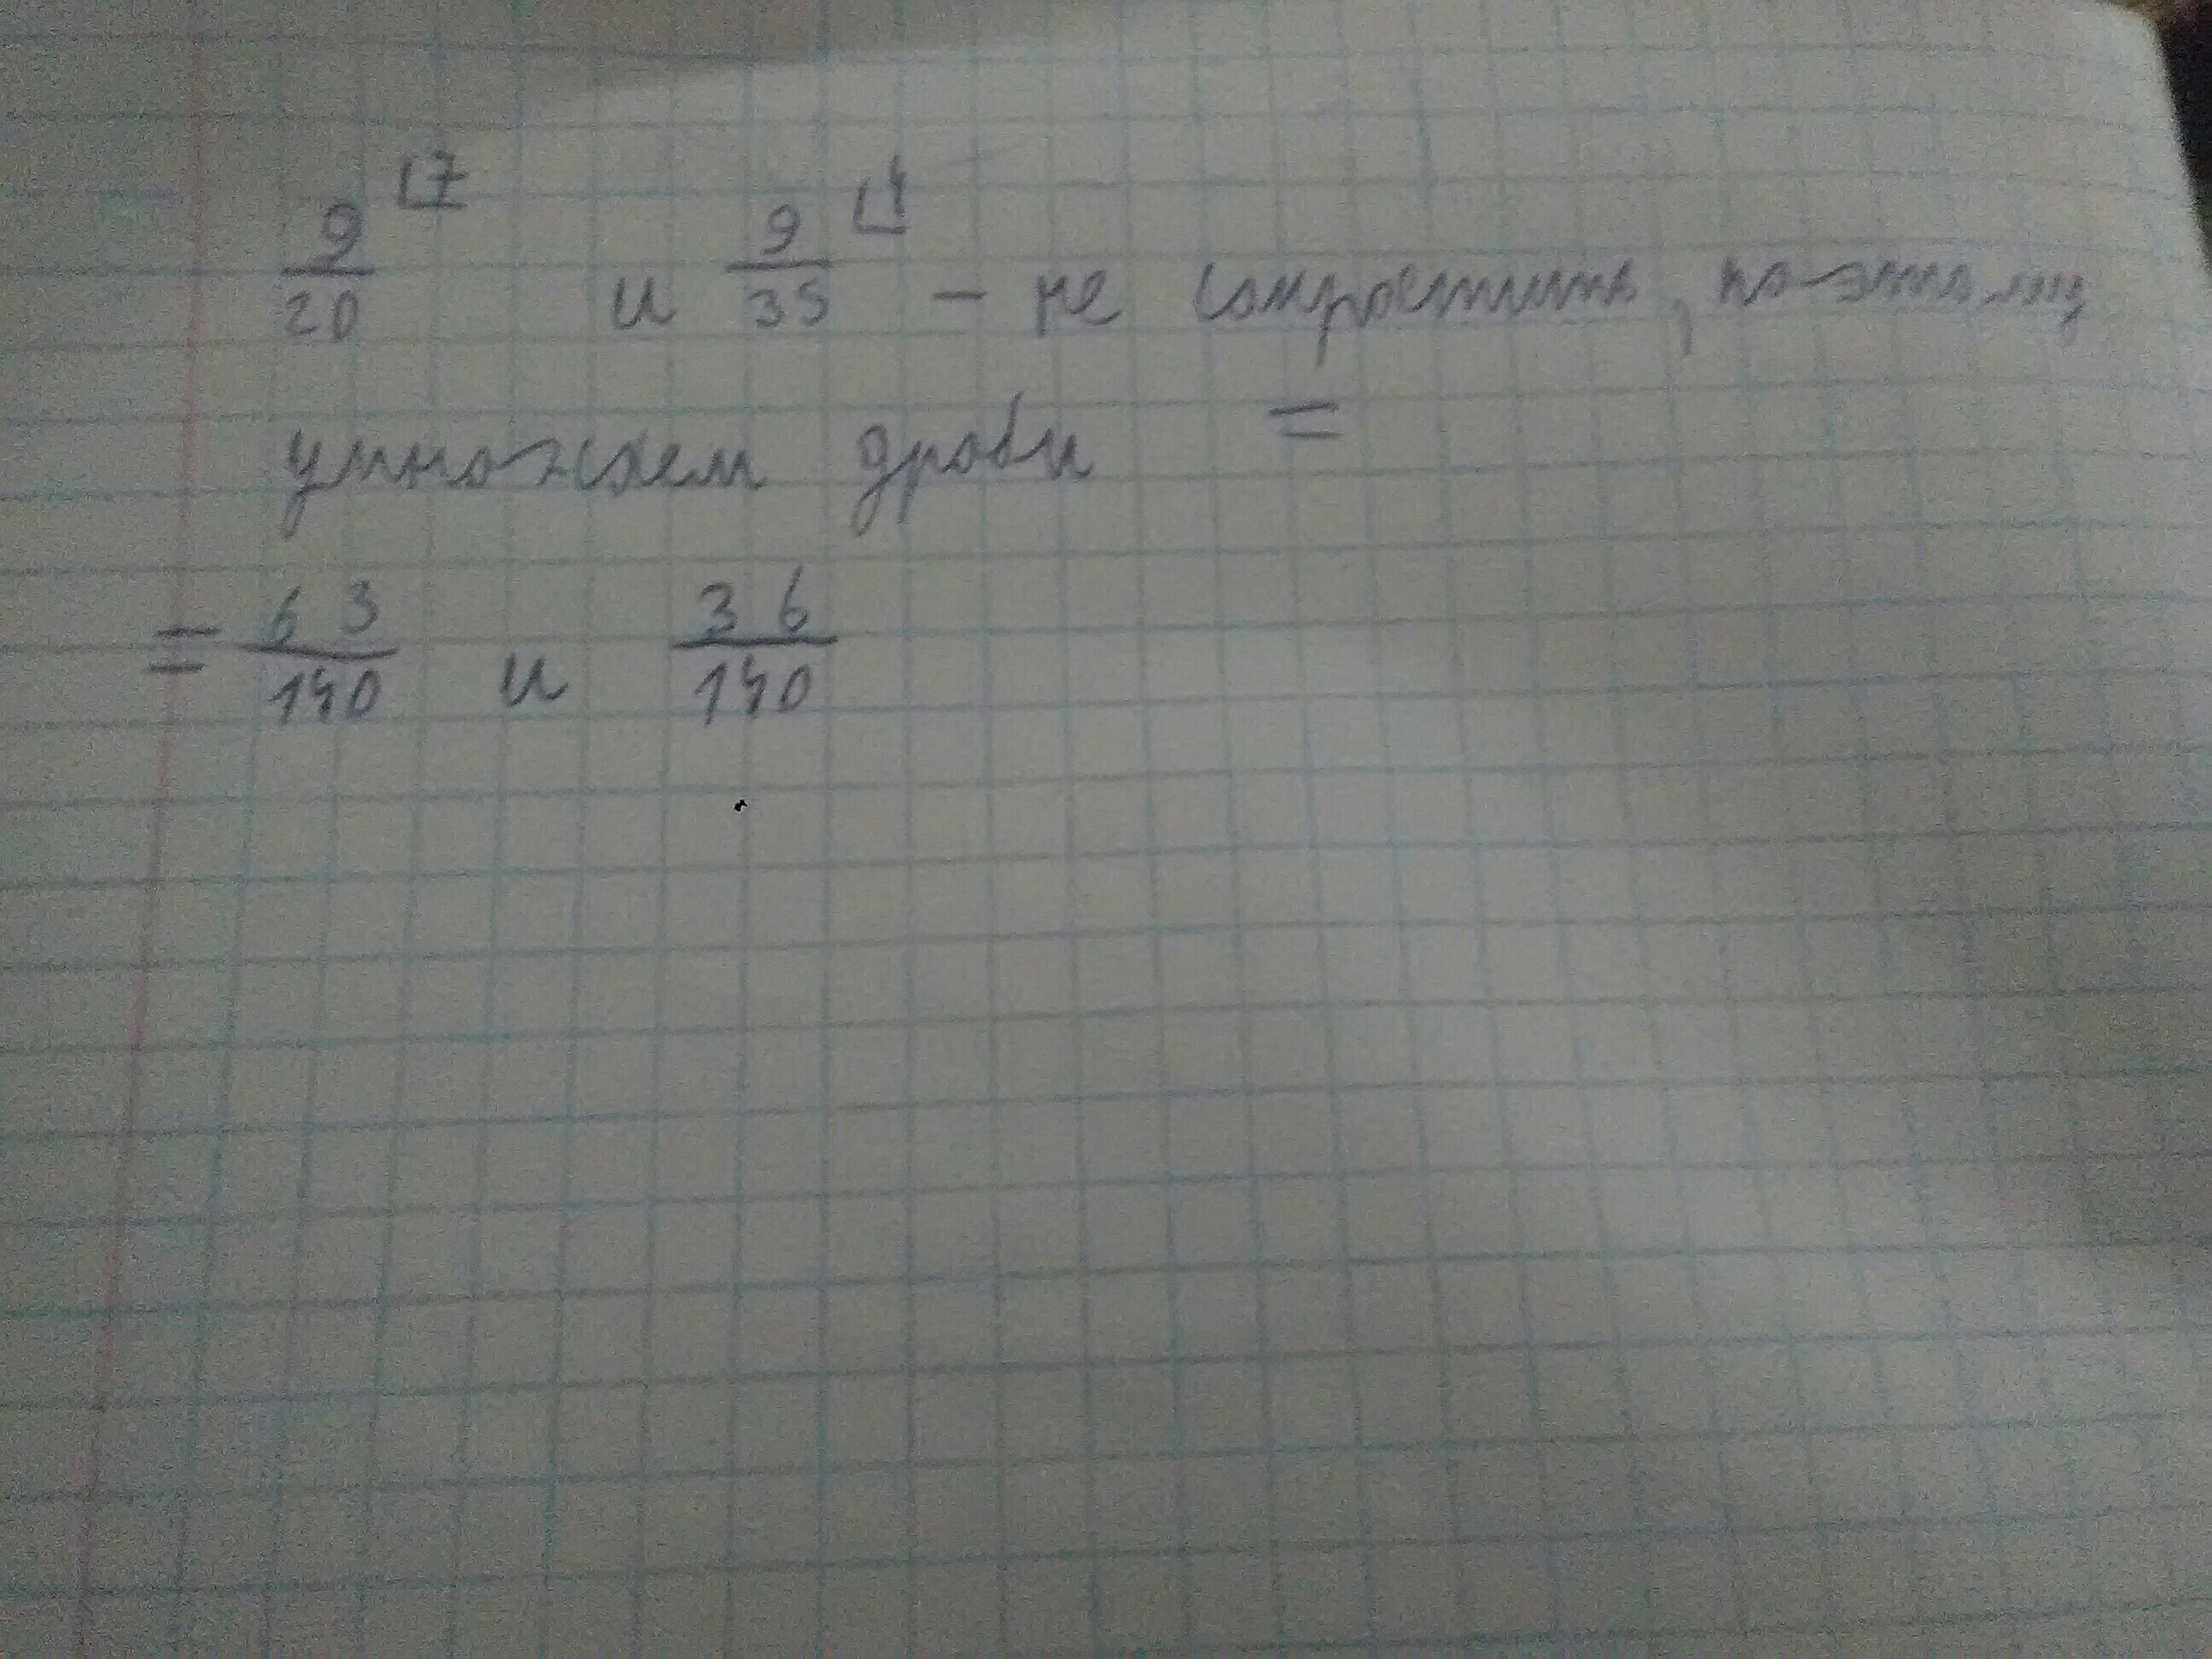 9/20 ⌊7 и 9/35 ⌊4 – не сократить, по-этому
умножем дроби =
= 63/140 и 36/140